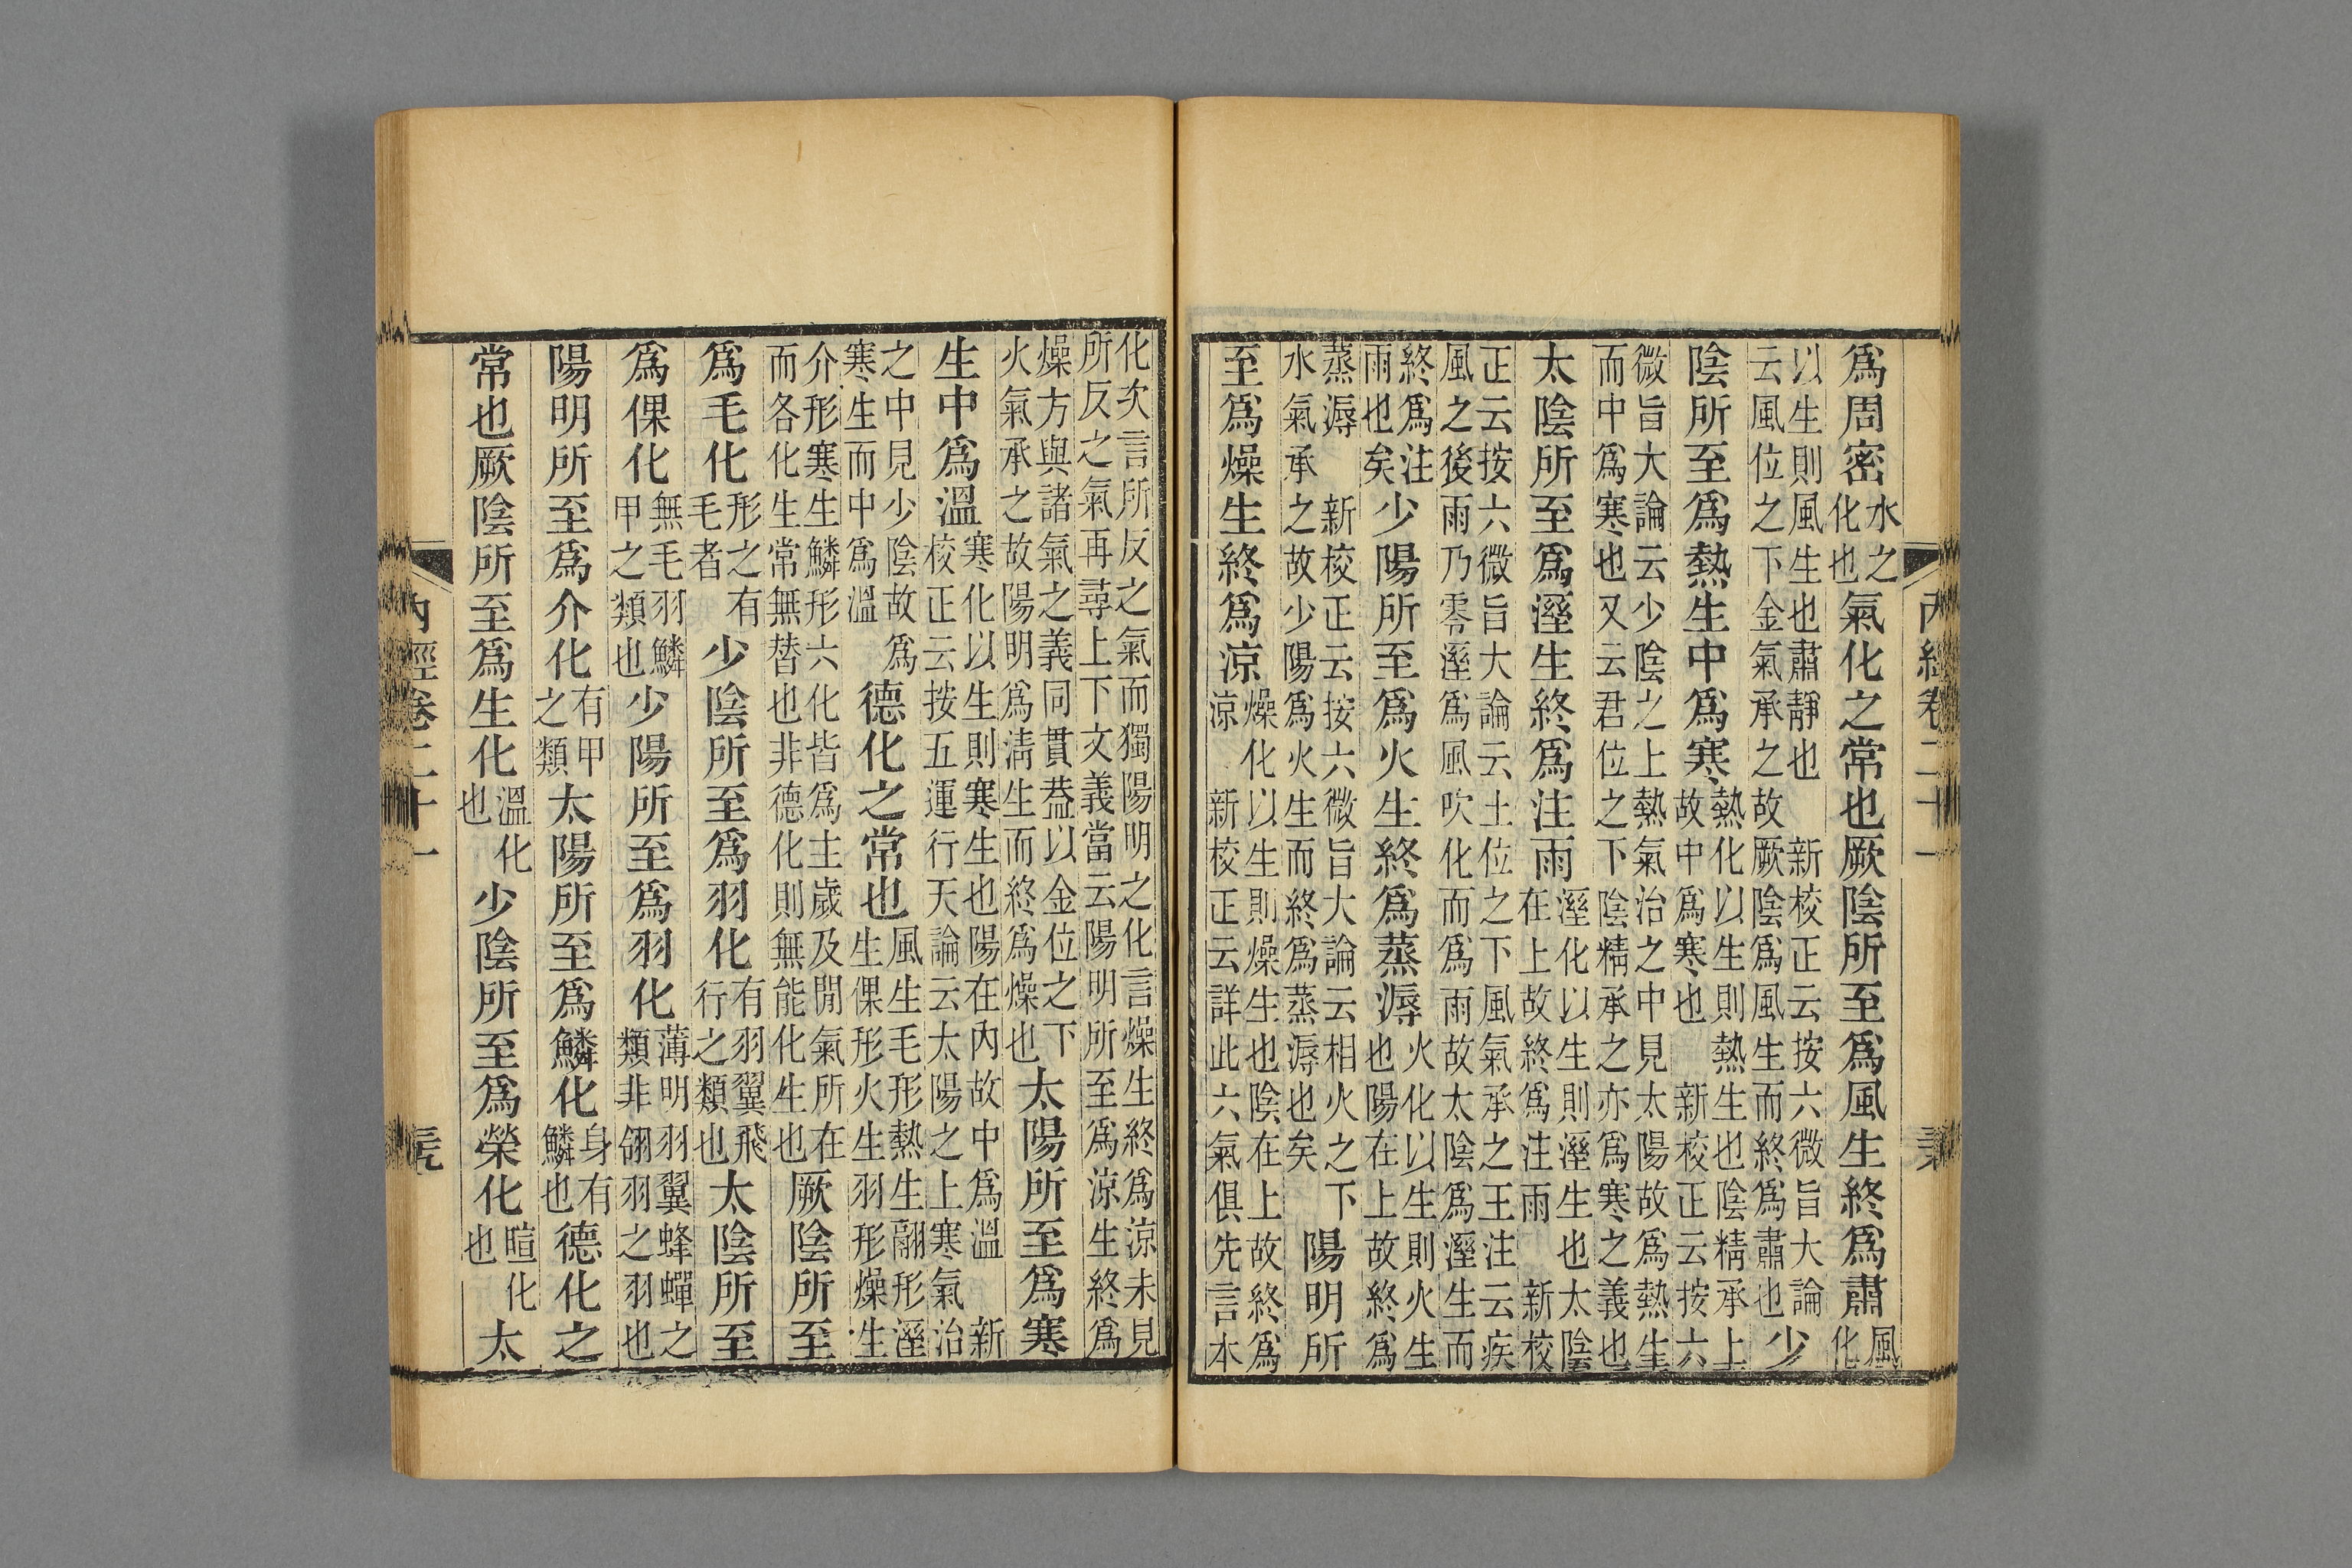 爲周密水之化也氣化之常也厥陰所至爲風生終爲肅風化
以生則風生也肅靜也　新校正云按六微旨大論云風位之下金氣承之故厥陰爲風生而終爲肅也少
陰所至爲熱生中爲寒熱化以生則熱生也陰精承上故中爲寒也　新校正云按六
微旨大論云少陰之上熱氣治之中見太陽故爲熱生而中爲寒也又云君位之下陰精承之亦爲寒之義也
太陰所至爲溼生終爲注雨溼化以生則溼生也太陰在上故終爲注雨　新校
正云按六微旨大論云土位之下風氣承之王注云疾風之後雨乃零溼爲風吹化而爲雨故太陰爲溼生而
終爲注雨也矣少陽所至爲火生終爲蒸溽火化以生則火生也陽在上故終爲
蒸溽　新校正云按六微旨大論云相火之下水氣承之故少陽爲火生而終爲蒸溽也矣陽明所
至爲燥生終爲涼燥化以生則燥生也陰在上故終爲涼　新校正云詳此六氣俱先言本
化次言所反之氣而獨陽明之化言燥生終爲涼未見所反之氣再尋上下文義當云陽明所至爲涼生終爲
燥方與諸氣之義同貫葢以金位之下火氣承之故陽明爲清生而終爲燥也太陽所至爲寒
生中爲溫寒化以生則寒生也陽在內故中爲溫　新校正云按五運行天論云太陽之上寒氣治
之中見少陰故爲寒生而中爲溫德化之常也風生毛形熱生翮形溼生倮形火生羽形燥生
介形寒生鱗形六化皆爲主歲及閒氣所在而各化生常無替也非德化則無能化生也厥陰所至
爲毛化形之有毛者少陰所至爲羽化有羽翼飛行之類也太陰所至
爲倮化無毛羽鱗甲之類也少陽所至爲羽化薄明羽翼蜂蟬之類非翎羽之羽也
陽明所至爲介化有甲之類太陽所至爲鱗化身有鱗也德化之
常也厥陰所至爲生化溫化也少陰所至爲榮化暄化也太
內經卷二十一